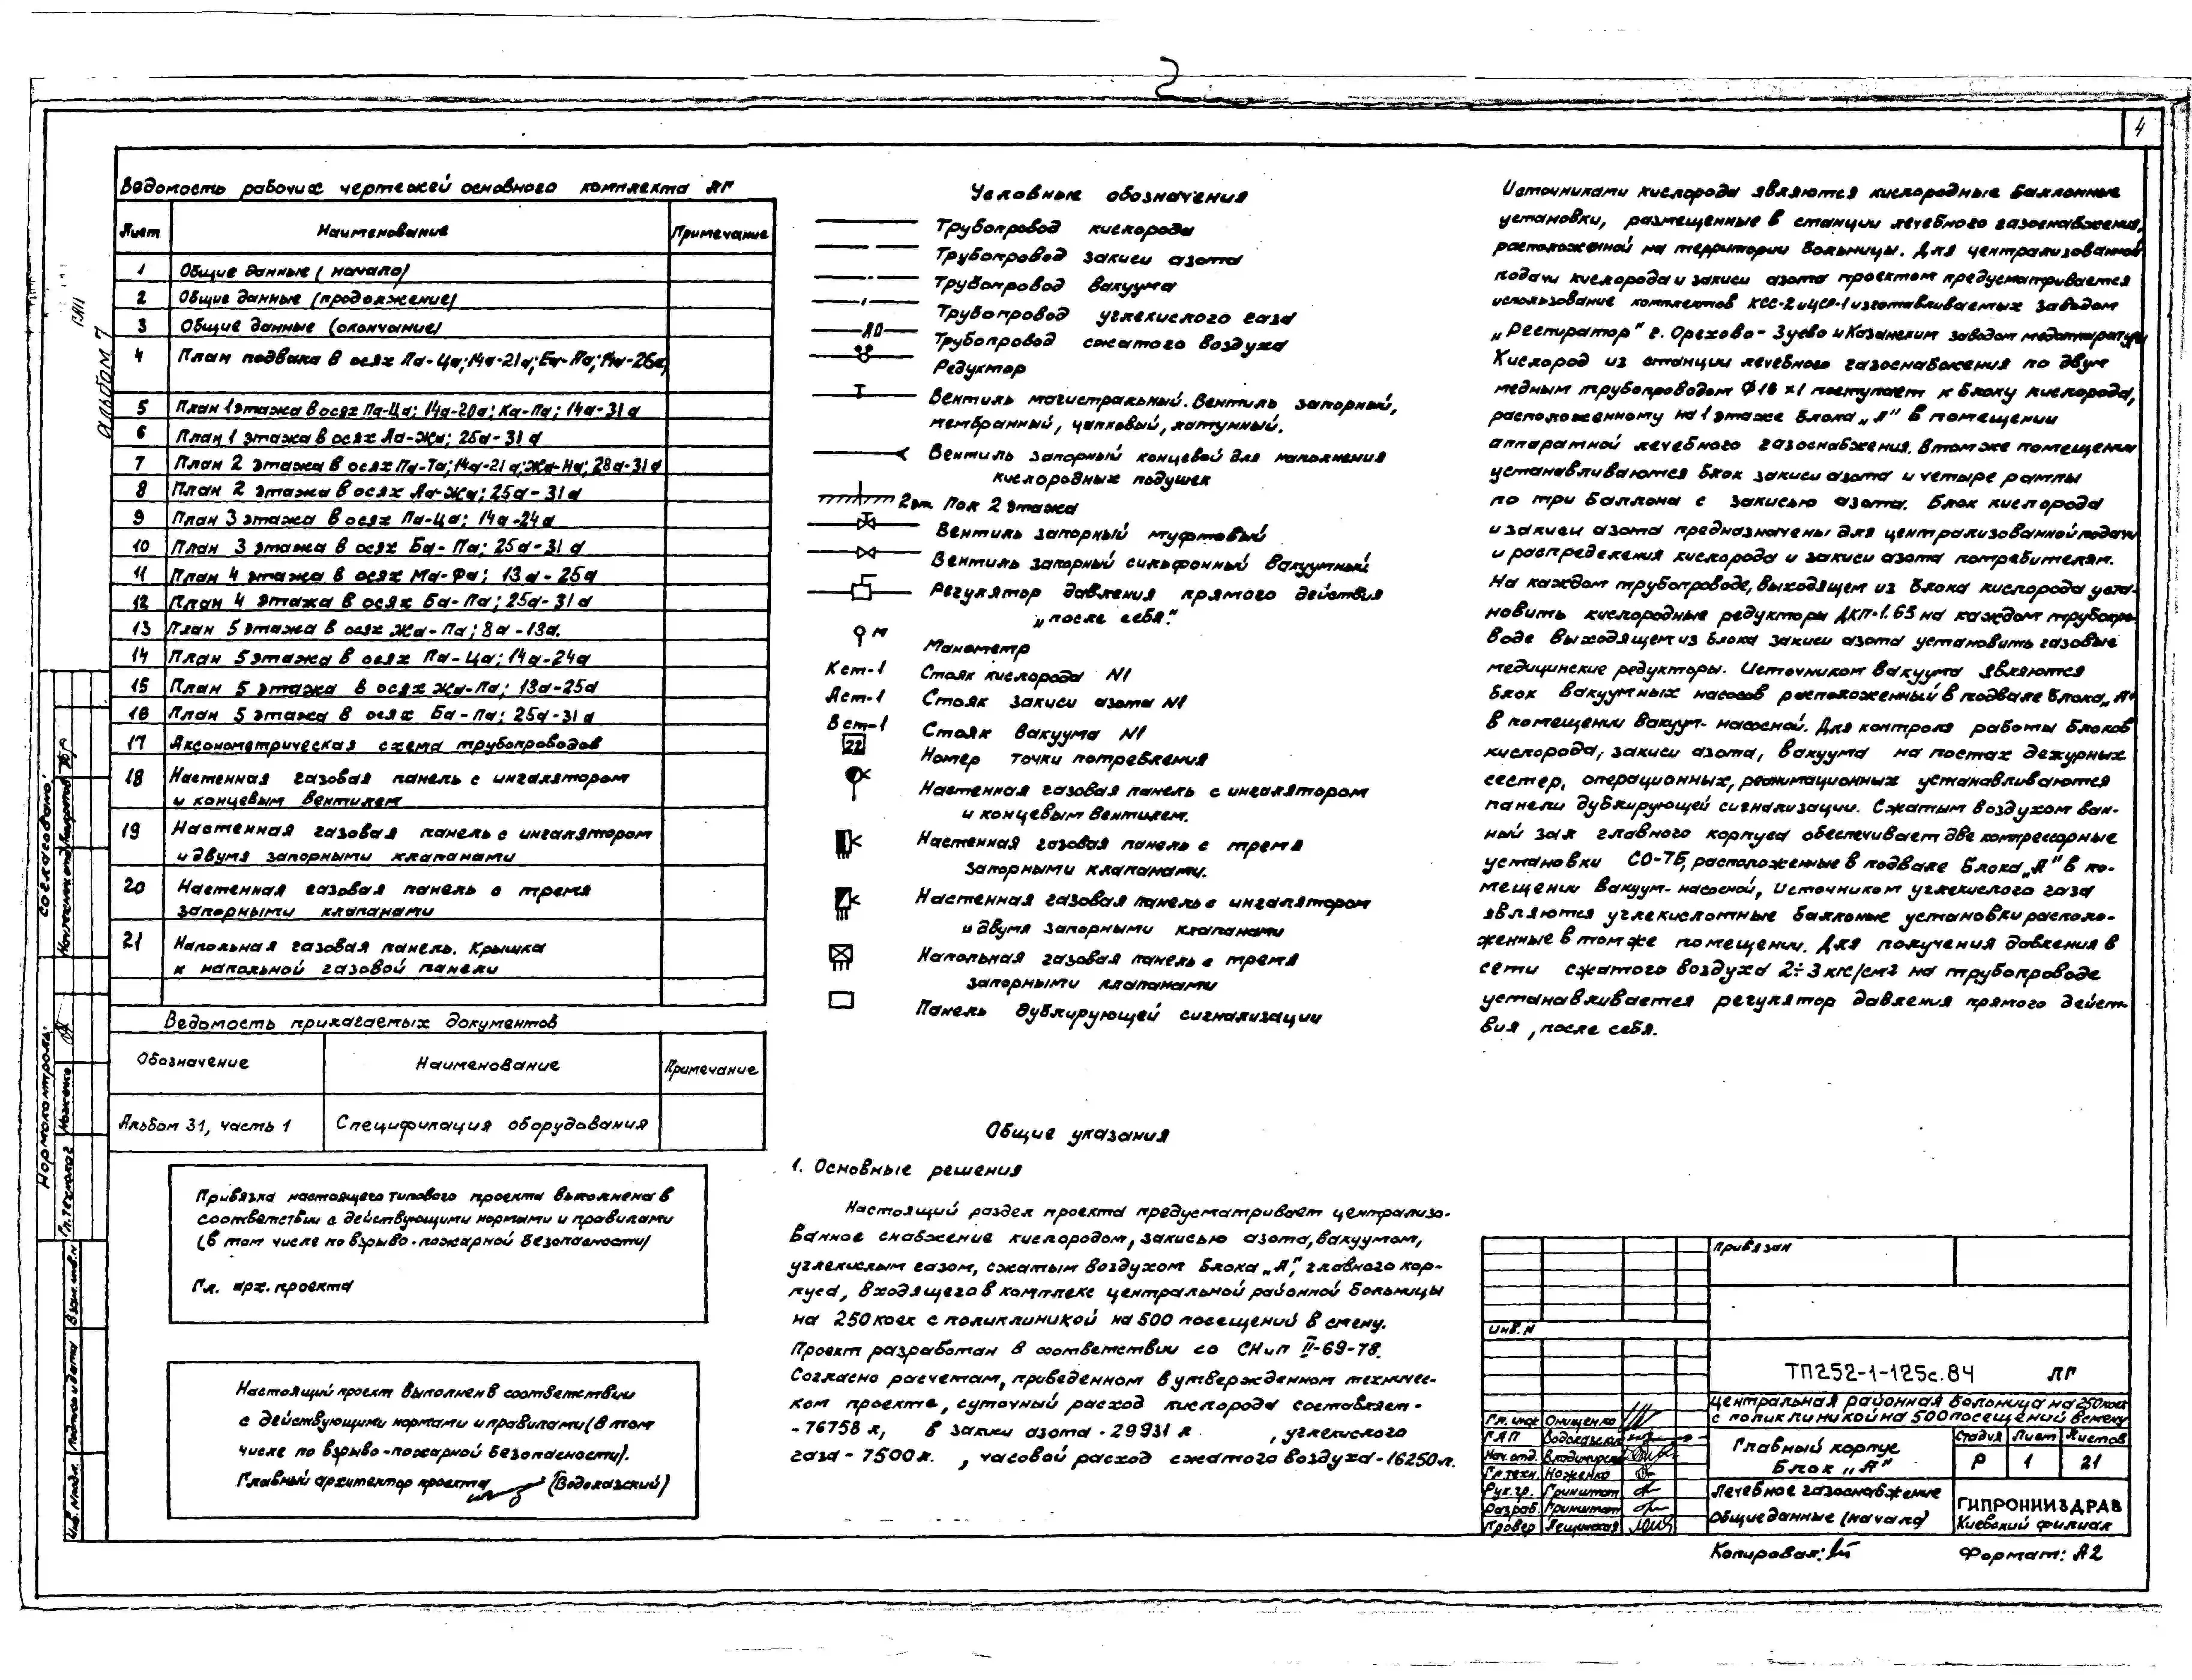 4
Альбом 7
Ведомость рабочих чертежей основного комплекта ЛГ
Лист Наименование Примечание
1 Общие данные (начало)
2 Общие данные (продолжение)
3 Общие данные (окончание)
4 План подвала в осях Па-Ца; 14а-21а; Еа-Ла; 14а-26а;
5 План 1 этажа в осях Па-Ца; 14а-20а; Ка-Па; 14а-31а
6 План 1 этажа в осях Ла-Жа; 25а-31а
7 План 2 этажа в осях Па-Та; 14а-21а; Жа-На; 28а-31а
8 План 2 этажа в осях Ла-Жа; 25а-31а
9 План 3 этажа в осях Па-Ца; 14а-24а
10 План 3 этажа в осях Ба-Па; 25а-31а
11 План 4 этажа в осях Ма-Фа; 13а-25а
12 План 4 этажа в осях Ба-Па; 25а-31а
13 План 5 этажа в осях Жа-Па; 8а-13а.
14 План 5 этажа в осях Па-Ца; 14а-24а
15 План 5 этажа в осях Жа-Па; 13а-25а
16 План 5 этажа в осях Ба-Па; 25а-31а
17 Аксонометрическая схема трубопроводов
18 Настенная газовая панель с ингалятором
и концевым вентилем
19 Настенная газовая панель с ингалятором
и двумя запорными клапанами
20 Настенная газовая панель с тремя
запорными клапанами
21 Напольная газовая панель. Крышка
к напольной газовой панели
Ведомость прилагаемых документов
Обозначение Наименование Примечание
Альбом 31, часть 1 Спецификация оборудования
Привязка настоящего типового проекта выполнена в
соответствии с действующими нормами и правилами
(в том числе по взрыво-пожарной безопасности)
Гл. арх. проекта
Настоящий проект выполнен в соответствии
с действующими нормами и правилами (в том
числе по взрыво-пожарной безопасности).
Главный архитектор проекта (Водолазский)
Условные обозначения
Трубопровод кислорода
Трубопровод закиси азота
Трубопровод вакуума
Трубопровод углекислого газа
Трубопровод сжатого воздуха
Редуктор
Вентиль магистральный. Вентиль запорный,
мембранный, цапковый, латунный.
Вентиль запорный концевой для наполнения
кислородных подушек
2эт. Пол 2 этажа
Вентиль запорный муфтовый
Вентиль запорный сильфонный вакуумный
Регулятор давления прямого действия
„после себя".
М Манометр
Кст-1 Стояк кислорода N1
Аст-1 Стояк закиси азота N1
Вст-1 Стояк вакуума N1
22 Номер точки потребления
Настенная газовая панель с ингалятором
и концевым вентилем.
Настенная газовая панель с тремя
запорными клапанами.
Настенная газовая панель с ингалятором
и двумя запорными клапанами
Напольная газовая панель с тремя
запорными клапанами
Панель дублирующей сигнализации
Общие указания
1. Основные решения
Настоящий раздел проекта предусматривает централизо-
ванное снабжение кислородом, закисью азота, вакуумом,
углекислым газом, сжатым воздухом блока „А", главного кор-
пуса, входящего в комплекс центральной районной больницы
на 250 коек с поликлиникой на 500 посещений в смену.
Проект разработан в соответствии со СНиП II-69-78.
Согласно расчетам, приведенном в утвержденном техничес-
ком проекте, суточный расход кислорода составляет-
-76758 л, в закиси азота -29931 л , углекислого
газа - 7500 л. , часовой расход сжатого воздуха -16250 л.
Источниками кислорода являются кислородные баллонные
установки, размещенные в станции лечебного газоснабжения,
расположенной на территории больницы. Для централизованной
подачи кислорода и закиси азота проектом предусматривается
использование комплектов КСС-2 и ЦСР-1 изготавливаемых заводом
„Респиратор" г. Орехово-Зуево и Казанским заводом медаппаратуры
Кислород из станции лечебного газоснабжения по двум
медным трубопроводом Ф18х1 поступает к блоку кислорода,
расположенному на 1 этаже блока „А" в помещении
аппаратной лечебного газоснабжения. В том же помещении
устанавливаются блок закиси азота и четыре рампы
по три баллона с закисью азота. Блок кислорода
и закиси азота предназначены для централизованной подачи
и распределения кислорода и закиси азота потребителям.
На каждом трубопроводе, выходящем из блока кислорода уста-
новить кислородные редукторы ДКП-1.65 на каждом трубопро-
воде выходящем из блока закиси азота установить газовые
медицинские редукторы. Источником вакуума являются
блок вакуумных насосов расположенный в подвале блока „А"
в помещении вакуум-насосной. Для контроля работы блоков
кислорода, закиси азота, вакуума на постах дежурных
сестер, операционных, реанимационных устанавливаются
панели дублирующей сигнализации. Сжатым воздухом ван-
ный зал главного корпуса обеспечивает две компрессорные
установки СО-7Б, расположенные в подвале блока „А" в по-
мещении вакуум-насосной, Источником углекислого газа
являются углекислотные баллоные установки располо-
женные в том же помещении. Для получения давления в
сети сжатого воздуха 2÷3 кгс/см2 на трубопроводе
устанавливается регулятор давления прямого дейст-
вия „после себя.
Привязан
Инв. N
ТП252-1-125с.84 ЛГ
Центральная районная больница на 250 коек
с поликлиникой на 500 посещений в смену
Гл. инж Онищенко
ГАП Водолазский
Нач. отд.
Гл. техн. Ноженко
Рук. гр. Гринштат
Разраб. Гринштат
Провер Лещинская
Главный корпус
Блок „А"
Стадия Лист Листов
Р 1 21
Лечебное газоснабжение
Общие данные (начало)
ГИПРОНИИЗДРАВ
Киевский филиал
Копировал: Формат: А2
Согласовано:
Нормоконтроль:
Гл. технолог Ноженко
Взам. инв. N
Подпись и дата
Инв. N подл.